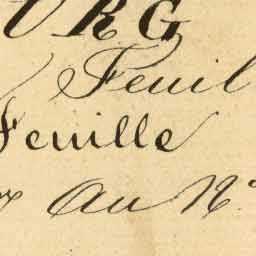 URG
Feuil
Feuille
au No